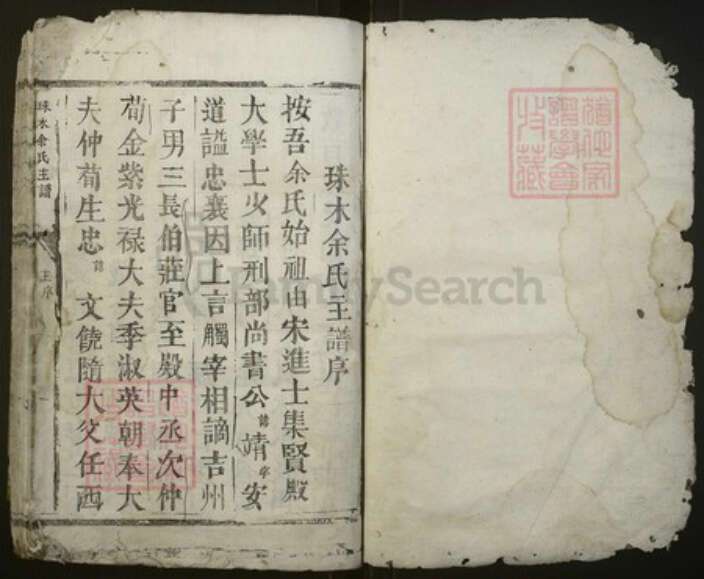 珠木余氏主譜序
按吾余氏始祖由宋進士集賢殿
大學士少師刑部尚書公諱靖字安
道諡忠襄因上言觸宰相謫吉州
子男三長伯莊官至殿中丞次仲
荀金紫光祿大夫季淑英朝奉大
夫仲荀生忠諱文饒隨大父任西
余氏主譜
主序
FamilySearch